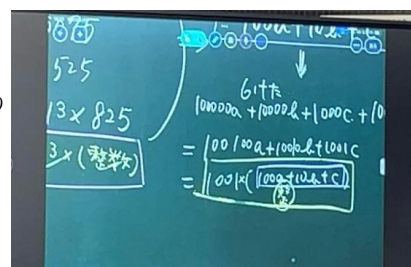 525
13×825
3×(整数)
6ケタ
100000a+10000b+1000c+100
=100100a+10010b+1001c
=1001×(100a+10b+c)
整